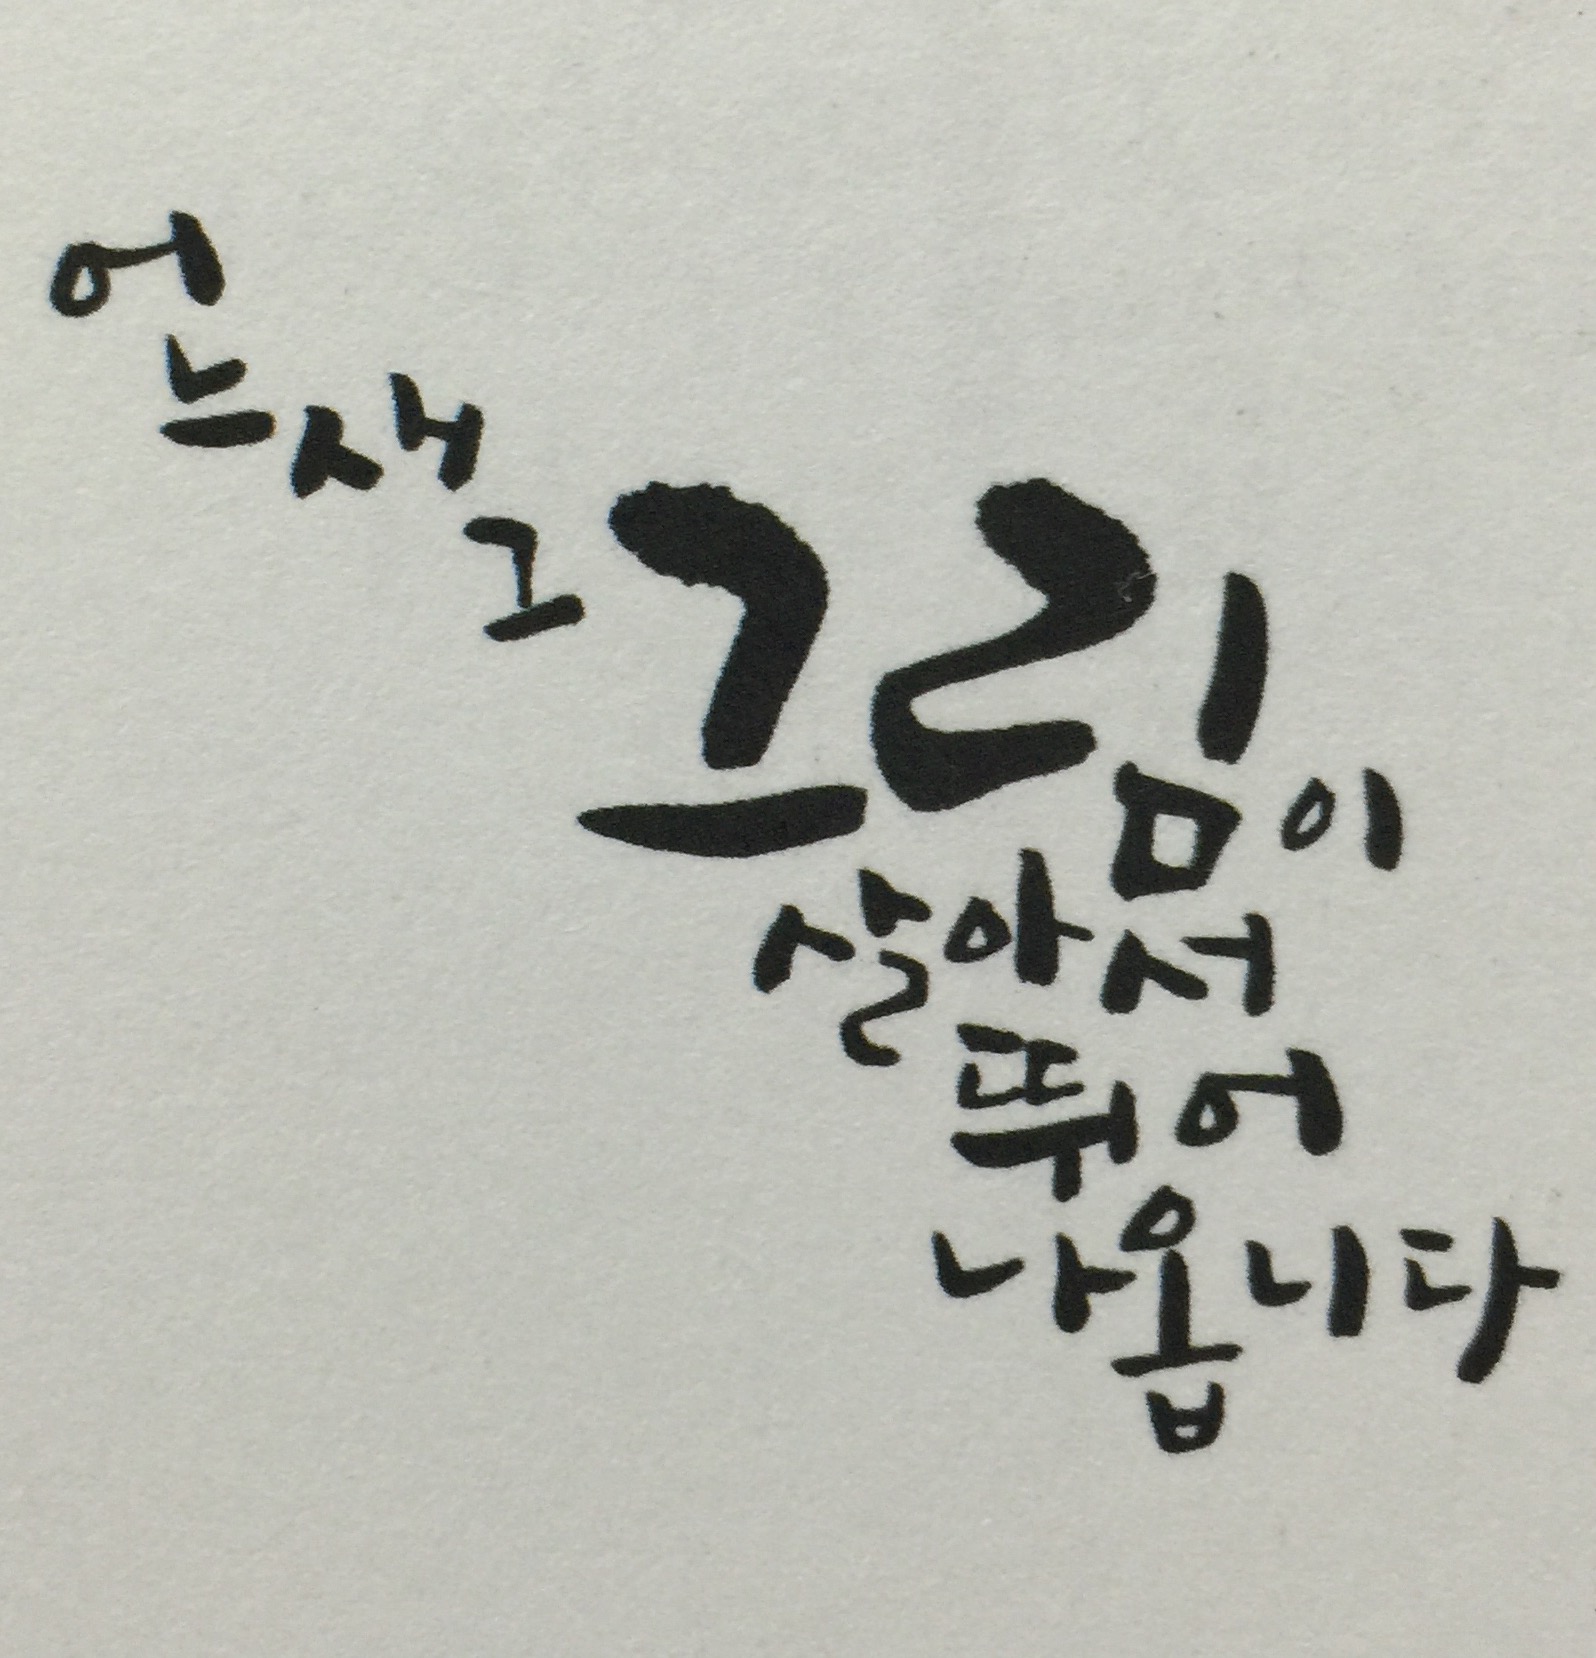 어느새
그 그림이
살아서
뛰어
나옵니다